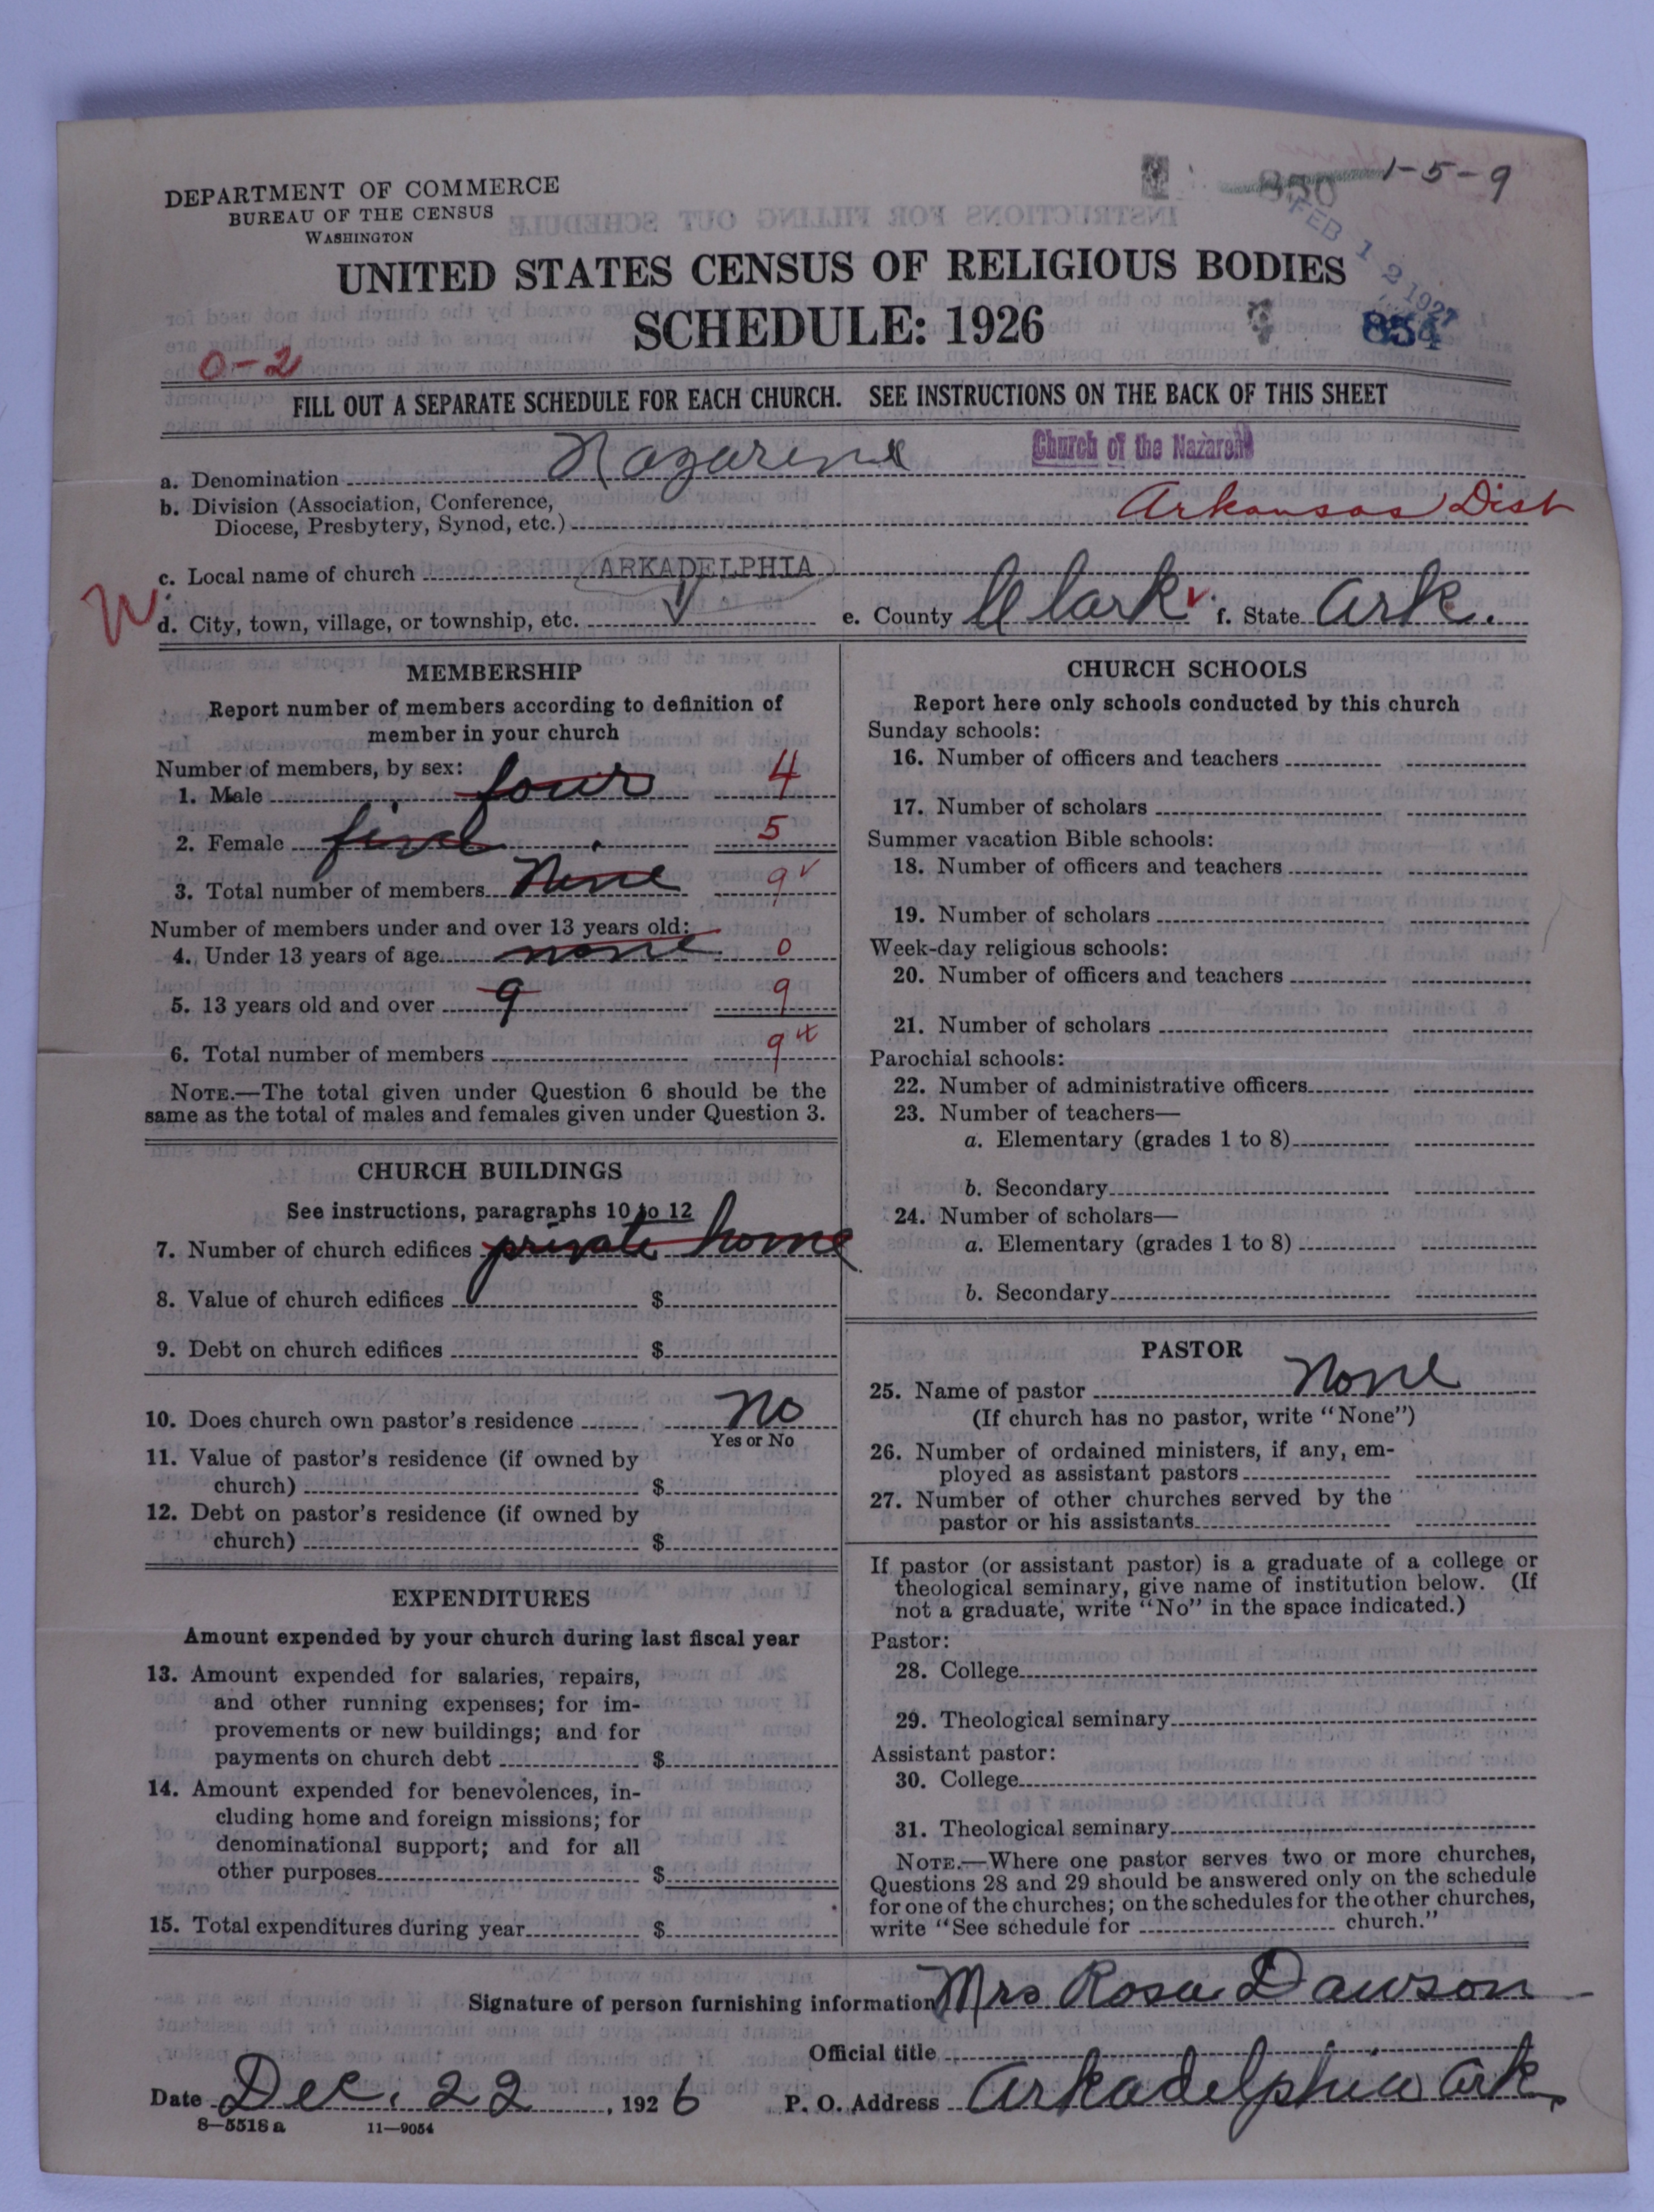 1-5-9
DEPARTMENT OF COMMERCE
BUREAU OF THE CENSUS
WASHINGTON
FEB 12 1927
UNITED STATES CENSUS OF RELIGIOUS BODIES
SCHEDULE: 1926
854
0-2
FILL OUT A SEPARATE SCHEDULE FOR EACH CHURCH. SEE INSTRUCTIONS ON THE BACK OF THIS SHEET
a. Denomination Nazarene Church of the Nazarene
b. Division (Association, Conference,
Diocese, Presbytery, Synod, etc.) Arkansas Dist
c. Local name of church ARKADELPHIA
d. City, town, village, or township, etc. √ e. County Clark √ f. State Ark.
MEMBERSHIP
Report number of members according to definition of
member in your church
Number of members, by sex:
1. Male four 4
2. Female five 5
3. Total number of members None 9 √
Number of members under and over 13 years old:
4. Under 13 years of age none 0
5. 13 years old and over 9 9
6. Total number of members 9
NOTE.—The total given under Question 6 should be the
same as the total of males and females given under Question 3.
CHURCH BUILDINGS
See instructions, paragraphs 10 to 12
7. Number of church edifices private home
8. Value of church edifices $
9. Debt on church edifices $
10. Does church own pastor's residence No
Yes or No
11. Value of pastor's residence (if owned by
church) $
12. Debt on pastor's residence (if owned by
church) $
EXPENDITURES
Amount expended by your church during last fiscal year
13. Amount expended for salaries, repairs,
and other running expenses; for im-
provements or new buildings; and for
payments on church debt $
14. Amount expended for benevolences, in-
cluding home and foreign missions; for
denominational support; and for all
other purposes $
15. Total expenditures during year $
CHURCH SCHOOLS
Report here only schools conducted by this church
Sunday schools:
16. Number of officers and teachers
17. Number of scholars
Summer vacation Bible schools:
18. Number of officers and teachers
19. Number of scholars
Week-day religious schools:
20. Number of officers and teachers
21. Number of scholars
Parochial schools:
22. Number of administrative officers
23. Number of teachers—
a. Elementary (grades 1 to 8)
b. Secondary
24. Number of scholars—
a. Elementary (grades 1 to 8)
b. Secondary
PASTOR
25. Name of pastor None
(If church has no pastor, write "None")
26. Number of ordained ministers, if any, em-
ployed as assistant pastors
27. Number of other churches served by the
pastor or his assistants
If pastor (or assistant pastor) is a graduate of a college or
theological seminary, give name of institution below. (If
not a graduate, write "No" in the space indicated.)
Pastor:
28. College
29. Theological seminary
Assistant pastor:
30. College
31. Theological seminary
NOTE.—Where one pastor serves two or more churches,
Questions 28 and 29 should be answered only on the schedule
for one of the churches; on the schedules for the other churches,
write "See schedule for church."
Signature of person furnishing information Mrs Rosa Dawson
Official title
Date Dec. 22, 1926 P. O. Address Arkadelphia Ark
8—5518 a 11—9054